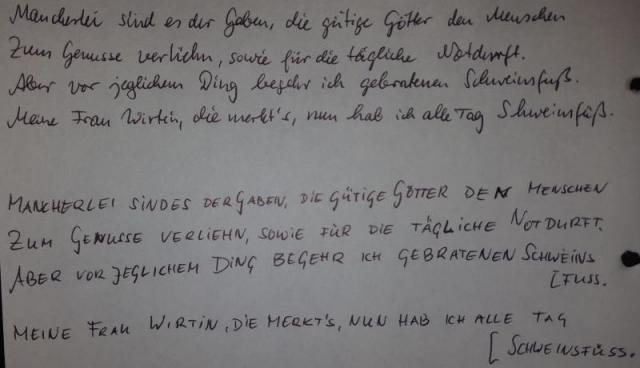 Mancherlei sind es der Gaben, die gütige Götter den Menschen
Zum Genusse verliehn, sowie für die tägliche Notdurft.
Aber vor jeglichem Ding begehr ich gebratenen Schweinsfuß.
Meine Frau Wirtin, die merkt's, nun hab ich alle Tag Schweinsfüß.
MANCHERLEI SIND ES DER GABEN, DIE GÜTIGE GÖTTER DEN MENSCHEN
ZUM GENUSSE VERLIEHN, SOWIE FÜR DIE TÄGLICHE NOTDURFT.
ABER VOR JEGLICHEM DING BEGEHR ICH GEBRATENEN SCHWEINS
[FUSS.
MEINE FRAU WIRTIN, DIE MERKT'S, NUN HAB ICH ALLE TAG
[SCHWEINSFÜSS.